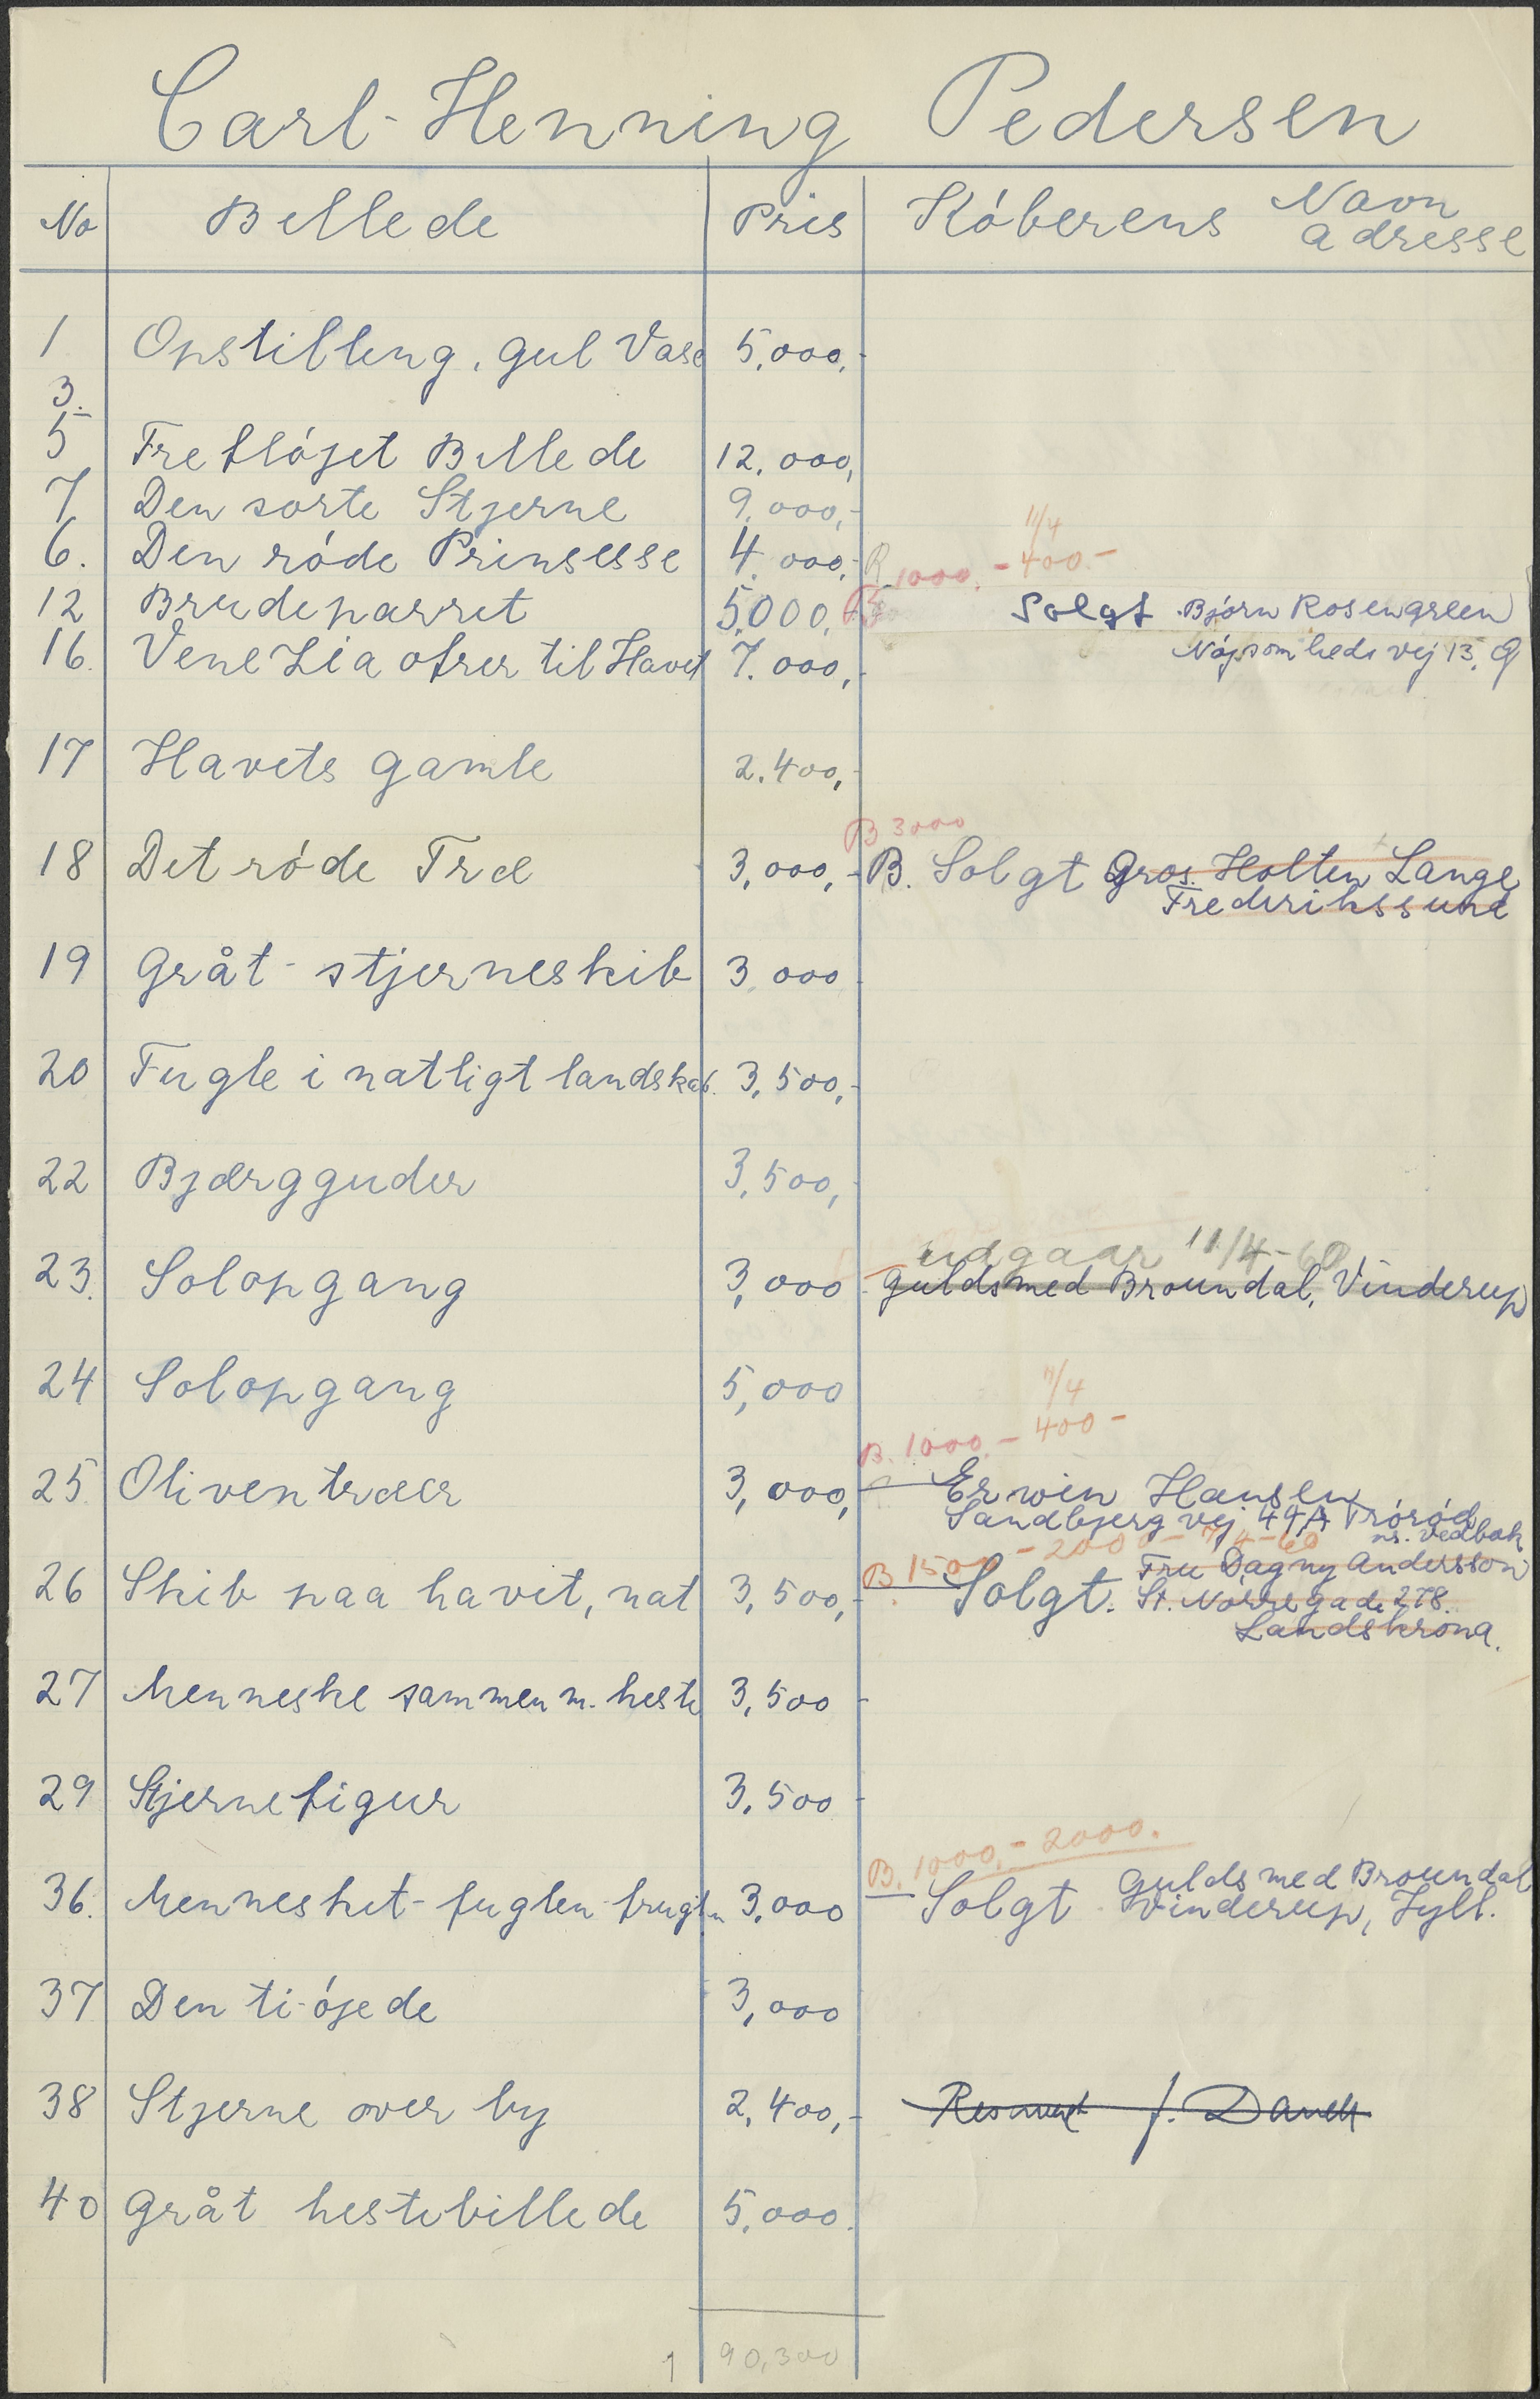 Carl-Henning Pedersen
No Billede Pris Köberens Navn
adresse
1 Opstilling, gul Vase 5.000,-
3.
5 Trefløjet Billede 12.000,
7 Den sorte Stjerne 9.000,-
11/4
6. Den róde Prinsesse 4.000,- R 1000.- 400.-
12 Brudeparret 5.000, Solgt Bjórn Rosengreen
16. Venezia ofrer til Havet 7.000,- Nójsomhedsvej 13, Ø
17 Havets gamle 2.400,-
B 3000
18 Det róde Træ 3,000,- B. Solgt Gros. Holten Lange
Frederikssund
19 Gråt-stjerneskib 3.000
20 Fugle i natligt landskab. 3,500,-
22 Bjærgguder 3,500,-
udgaar 11/4-60
23. Solopgang 3,000 Guldsmed Broundal, Vinderup
24 Solopgang 5,000
11/4
B. 1000.- 400-
25. Oliventræer 3,000, Erwin Hansen
Sandbjergvej 49A Tróród
nr. Vedbæk
B. 1500 - 2000 - 11/4-60
26 Skib paa havet, nat 3,500,- Solgt. Fru Dagny Andersson
St. Nórregade 278.
Landskrona.
27 Menneske sammen m. heste 3,500 -
29 Stjernefigur 3.500 -
B. 1000,- 2000.
36. Mennesket-fuglen-frugten 3.000 Solgt Guldsmed Broundal
Vinderup, Jyll.
37 Den ti-ójede 3,000
38 Stjerne over by 2,400,- Reserveret f. Dansk
40 Gråt hestebillede 5.000.
1 90,300